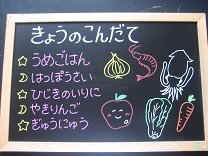 きょうのこんだて
うめごはん
はっぽうさい
ひじきのいりに
やきりんご
ぎゅうにゅう